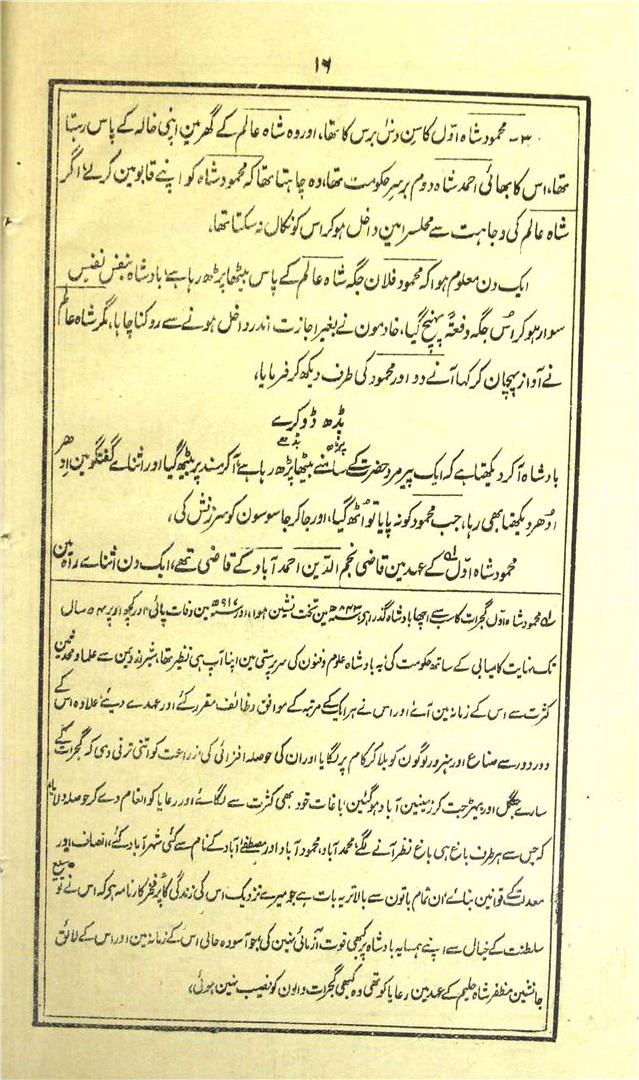 ۱۶
۳۔ محمود شاہ اوّل کا سِن دسؔ برس کا تھا، اور وہ شاہ عالم کے گھر مین اپنی خالہ کے پاس رہتا
تھا، اس کا بھائی احمد شاہ دوم برسرِ حکومت تھا، وہ چاہتا تھا کہ محمود شاہ کو اپنے قابو مین کرلے، اگر
شاہ عالم کی وجاہت سے محلسرا مین داخل ہو کر اس کو نکال نہ سکتا تھا،
ایک دن معلوم ہوا کہ محمود فلان جگہ شاہ عالم کے پاس بیٹھا پڑھ رہا ہے، بادشاہ بنفس نفیس
سوار ہو کر اُس جگہ دفعۃً پہنچ گیا، خادمون نے بغیر اجازت اندر داخل ہونے سے روکنا چاہا، مگر شاہ عالم
نے آواز پہچان کر کہا آنے دو اور محمود کی طرف دیکھ کر فرمایا،
پڈھ ڈوکرے
پڑھ بڈھے
بادشاہ آکر دیکھتا ہے کہ ایک پیر مرد حضرت کے سامنے بیٹھا پڑھ رہا ہے، آکر مسند پر بیٹھ گیا اور اثناے گفتگو مین اِدھر
اُدھر دیکھتا بھی رہا، جب محمود کو نہ پایا تو اُٹھ گیا، اور جا کر جاسوسون کو سرزنش کی،
محمود شاہ اوّل لہ کے عہد مین قاضی نجم الدّین احمد آباد کے قاضی تھے، ایک دن اثناے راہ مین
لہ محمود شاہ اوّل گجرات کا سب سے اچھا بادشاہ گذرا ہی، ۸۶۳ھ مین تخت نشین ہوا، اور ۹۱۷ھ مین وفات پائی، اور کچھ اوپر ۵۴ سال
تک نہایت کامیابی کے ساتھ حکومت کی، یہ بادشاہ علوم و فنون کی سرپرستی مین اپنا آپ ہی نظیر تھا، شیراز و یمن سے علماء و محدثین
کثرت سے اس کے زمانہ مین آئے اور اس نے ہر ایک کے مرتبہ کے موافق وظائف مقرر کئے اور عہدے دیئے، علاوہ اس کے
دور دور سے صناع اور ہنرور لوگون کو بلا کر کام پر لگایا اور ان کی حوصلہ افزائی کی، زراعت کو اتنی ترقی دی کہ گجرات کے
سارے جنگل اور بیہڑ جٹ کر زمینین آباد ہو گئین، باغات خود بھی کثرت سے لگائے اور رعایا کو انعام دے کر حوصلہ دلایا
کہ جس سے ہر طرف باغ ہی باغ نظر آنے لگے، محمد آباد، محمود آباد اور مصطفےٰ آباد کے نام سے کئی شہر آباد کئے، انصاف اور
معدلت کے قوانین بنائے، ان تمام باتون سے بالاتر یہ بات ہے جو میرے نزدیک اس کی زندگی کا پُر فخر کارنامہ ہی کہ اس نے توسیع
سلطنت کے خیال سے اپنے ہمسایہ بادشاہ پر کبھی قوت آزمائی نہین کی، جو آسودہ حالی اس کے زمانہ مین اور اس کے لائق
جانشین مظفر شاہ حلیم کے عہد مین رعایا کو تھی وہ کبھی گجرات والون کو نصیب نہین ہوئی،